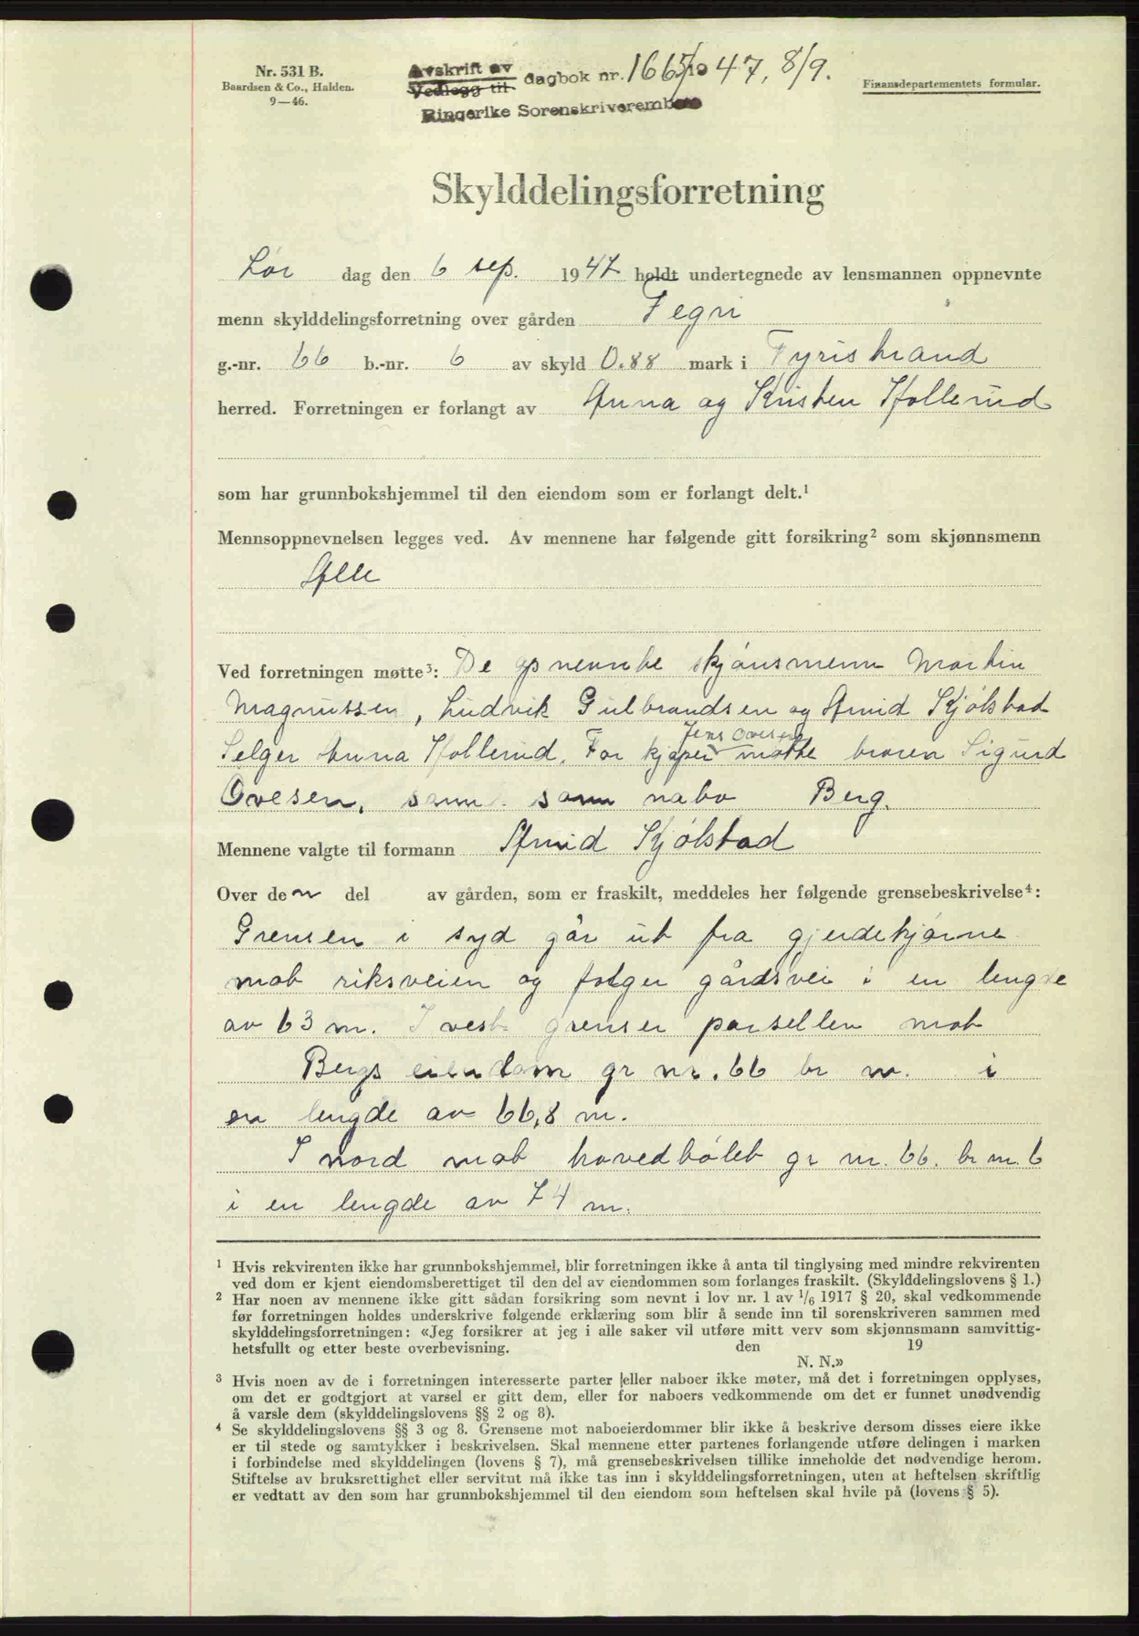 Nr. 531 B.
Baardsen & Co., Halden.
9—46.
Avskrift av
Vedlegg til dagbok nr. 1665/19 47, 8/9.
Ringerike Sorenskriverembete
Finansdepartementets formular.
Skylddelingsforretning
Lør dag den 6 sep. 1947 holdt undertegnede av lensmannen oppnevnte
menn skylddelingsforretning over gården Fegri
g.-nr. 66 b.-nr. 6 av skyld 0.88 mark i Tyristrand
herred. Forretningen er forlangt av Anna og Kristen Hollerud
som har grunnbokshjemmel til den eiendom som er forlangt delt.¹
Mennsoppnevnelsen legges ved. Av mennene har følgende gitt forsikring² som skjønnsmenn
Alle
Ved forretningen møtte³: De opnevnte skjönsmenn Martin
Magnussen, Ludvik Gulbrandsen og Arnid Kjölstad
Jens Ovesen
Selger Anna Hollerud. For kjöper møtte broren Sigurd
Ovesen, samt som nabo Berg.
Mennene valgte til formann Arnid Kjölstad
Over den del av gården, som er fraskilt, meddeles her følgende grensebeskrivelse⁴:
Grensen i syd går ut fra gjerdehjörne
mot riksveien og følger gårdsvei i en lengde
av 63 m. I vest grenser parsellen mot
Bergs eiendom gr nr. 66 br nr. i
en lengde av 66,8 m.
I nord mot hovedbölet gr nr. 66. br nr. 6
i en lengde av 74 m.
¹ Hvis rekvirenten ikke har grunnbokshjemmel, blir forretningen ikke å anta til tinglysing med mindre rekvirenten
ved dom er kjent eiendomsberettiget til den del av eiendommen som forlanges fraskilt. (Skylddelingslovens § 1.)
² Har noen av mennene ikke gitt sådan forsikring som nevnt i lov nr. 1 av 1/6 1917 § 20, skal vedkommende
før forretningen holdes underskrive følgende erklæring som blir å sende inn til sorenskriveren sammen med
skylddelingsforretningen: «Jeg forsikrer at jeg i alle saker vil utføre mitt verv som skjønnsmann samvittig-
hetsfullt og etter beste overbevisning. den 19
N. N.»
³ Hvis noen av de i forretningen interesserte parter eller naboer ikke møter, må det i forretningen opplyses,
om det er godtgjort at varsel er gitt dem, eller for naboers vedkommende om det er funnet unødvendig
å varsle dem (skylddelingslovens §§ 2 og 8).
⁴ Se skylddelingslovens §§ 3 og 8. Grensene mot naboeierdommer blir ikke å beskrive dersom disses eiere ikke
er til stede og samtykker i beskrivelsen. Skal mennene etter partenes forlangende utføre delingen i marken
i forbindelse med skylddelingen (lovens § 7), må grensebeskrivelsen tillike inneholde det nødvendige herom.
Stiftelse av bruksrettighet eller servitut må ikke tas inn i skylddelingsforretningen, uten at heftelsen skriftlig
er vedtatt av den som har grunnbokshjemmel til den eiendom som heftelsen skal hvile på (lovens § 5).